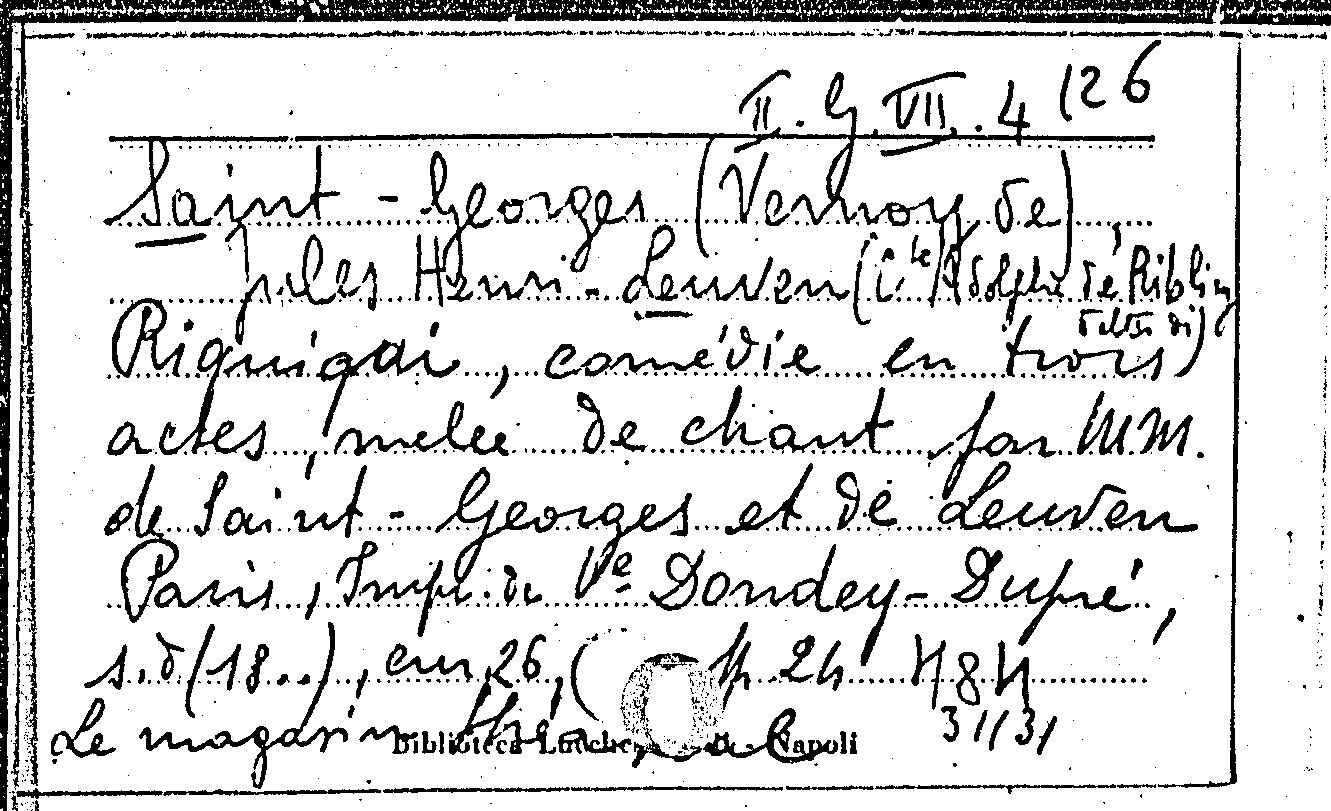 II. G. VII. 4 (26
Saint - Georges (Vernoy de),
Jules Henri - Leuven (C.te Adolphe de Ribbing
detto di)
Riquiqui, comédie en trois
actes, melée de chant par MM.
de Saint - Georges et de Leuven
Paris, Impr. de Ve Dondey - Dupré,
s.d (18..), cm 26, ( p. 24 484
Le magasin 31/31
Biblioteca Lucchesi Napoli